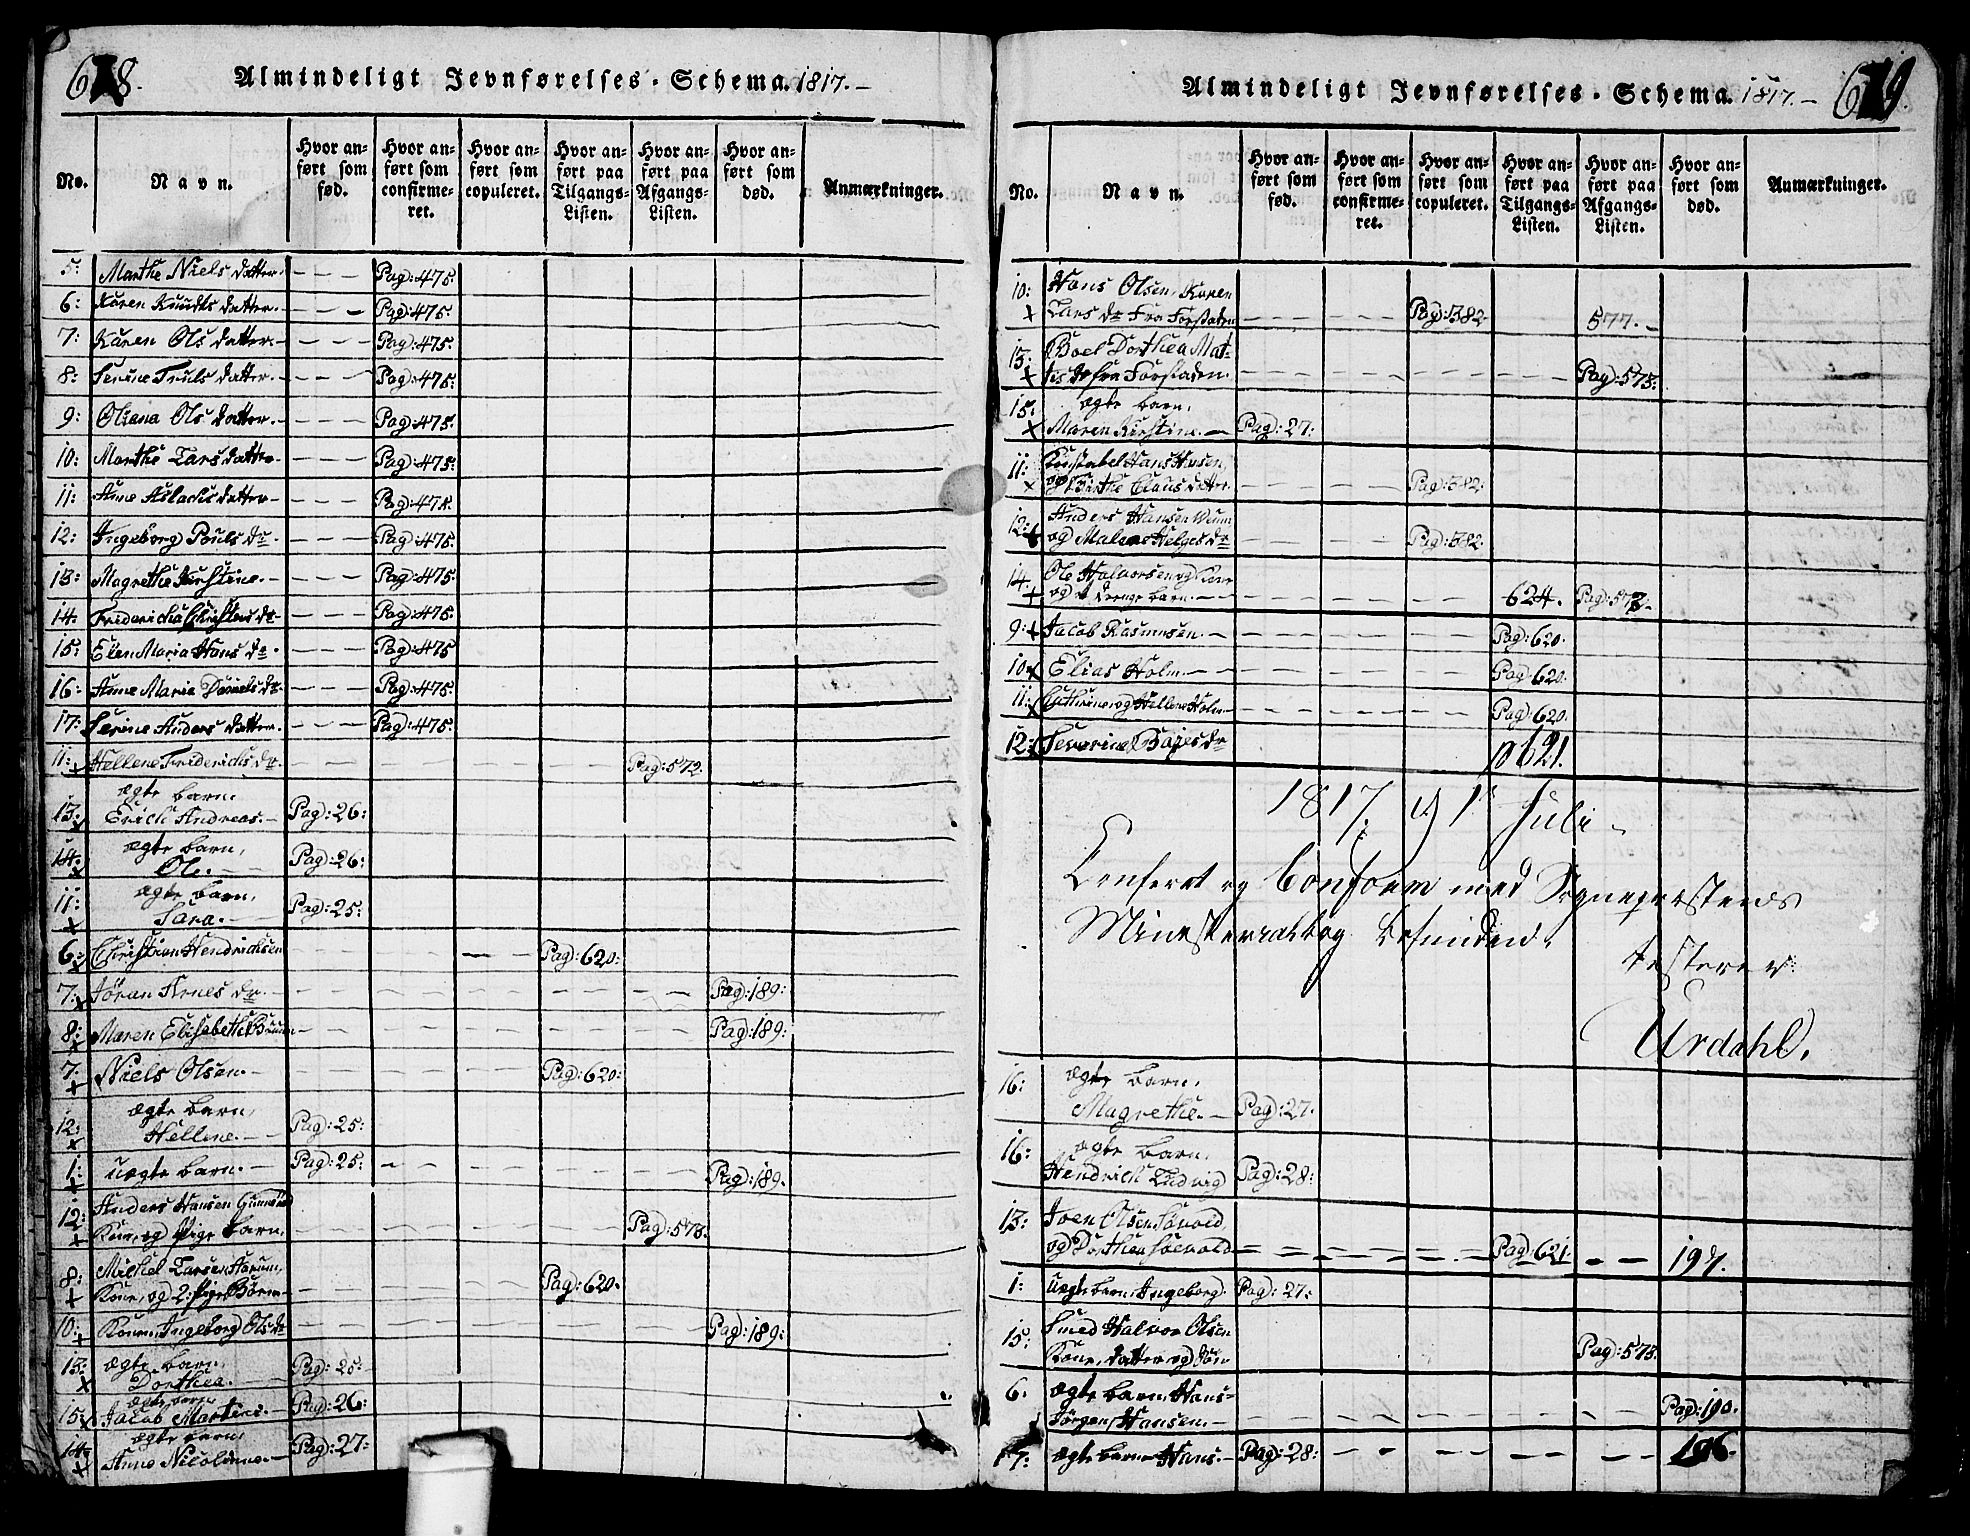 618.
Almindeligt Jevnførelses-Schema. 1817.-
No. Navn. Hvor anført som fød. Hvor anført som confirmeret. Hvor anført som copuleret. Hvor anført paa Tilgangs-Listen. Hvor anført paa Afgangs-Listen. Hvor anført som død. Anmærkninger.
5: Marthe Nielsdatter. - - - Pag: 475.
6: Karen Knudts datter. - - - Pag: 475.
7: Karen Ols datter. - - - Pag: 475.
8: Serine Truls datter. - - - Pag: 475.
9: Oliana Ols datter. - - - Pag: 475.
10: Marthe Larsdatter - - - Pag: 475.
11: Anne Aslachs datter - - - Pag: 475.
12: Ingeborg Pouls dr. - - - Pag: 475.
13: Magrethe Kirstine. - - - Pag: 475.
14. Fridericha dr. - - - Pag: 475.
15: Elen Maria Hans dr. - - - Pag: 475
16: Anne Maria Daniels dr. - - - Pag: 475.
17: Serine Anders datter. - - - Pag: 475.
11: x Hellene Friderichs dr. - - - Pag: 572.
ægte barn.
13. x Erich Andreas. - Pag: 26:
ægte barn,
14: x Ole. - - Pag: 26:
ægte barn,
11: x Sara. - - Pag: 25:
6: x Christian Hendrichsen - - - Pag: 620:
7. x Jöran Arnes dr. - - - Pag: 189:
8: x Maren Elisabeth - - - Pag: 189:
7. x Niels Olsen. - - - Pag: 620:
ægte barn,
12: x Hellene. - - Pag: 25:
1: x uægte barn. - Pag: 25: - - - Pag: 189.
12: Anders Hansen
x Kone, og Pige barn. - - - Pag: 573.
8: Michel Larsen
x Kone, og 2: Pige Börn - - - Pag: 620.
10: x Konen, Ingeborg Ols dr - - - Pag: 189:
15: ægte barn,
x Dorthea. - Pag: 25:
ægte barn
15: x Jacob Martins. - Pag: 26:
ægte barn,
14: x Anne Nicoline. - Pag: 27:
619.
Almindeligt Jevnførelses-Schema. 1817.-
No. Navn. Hvor anført som fød. Hvor anført som confirmeret. Hvor anført som copuleret. Hvor anført paa Tilgangs-Listen. Hvor anført paa Afgangs-Listen. Hvor anført som død. Anmærkninger.
10: Hans Olsen, Karen
x Lars dr Fra Forstaden - - - Pag: 382 577. -
13. Boel Dorthea Mat-
x tis dr fra Forstaden. - - - Pag: 573.
15: ægte barn,
x Maren Kirstine. - Pag: 27:
11: Hans
x og Birthe Claus datter. - - - Pag: 382:
12: Anders Hansen
x og Malene Helges dr - - - Pag: 382.
14. Ole Halvorsen og Kone
x og 1 Drenge barn. - - - 624. Pag: 573.
9: x Jacob Rasmusen. - - - Pag: 620.
10: x Elias Holm. - - - Pag: 620.
11: x Cathrine og Hellene Holm - - - Pag: 620.
12: x Severine Boyes dr 621.
1817. d 1 Juli -
Confereret og Conform med Sognepræstens
Ministerialbog befunden.
testerer
Urdahl.
16: ægte barn,
Magrethe. - Pag: 27.
16: ægte barn,
Hendrich Ludvig Pag: 28:
13: Joen Olsen
og Dorthea - - - Pag: 621. - - 197.
1: uægte barn, Ingeborg. Pag: 27:
15: Smed Halvor Olsen
Kone, datter og Sön Pag: 573.
6: ægte barn, Hans
Jörgen Hansen. - - - Pag: 190.
7: ægte barn - Hans. - Pag: 28: - - -